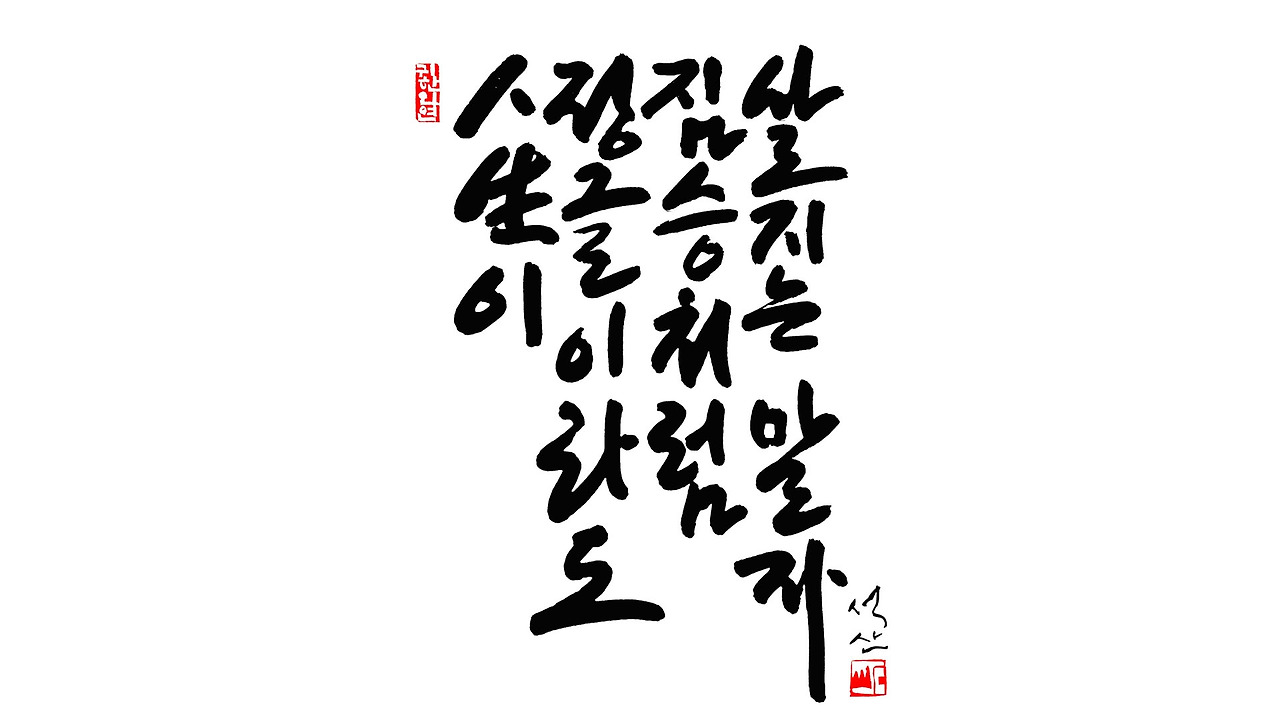 人生이
정글이라도
짐승처럼
살지는 말자
석산